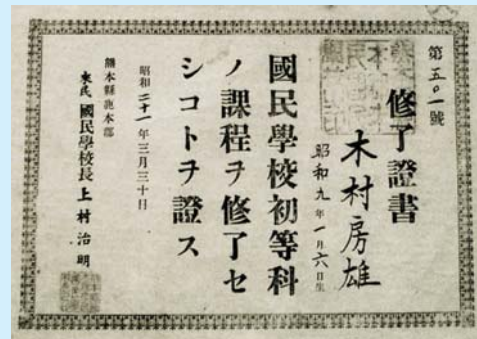 第五〇一號
修了證書
木村房雄
昭和九年一月六日生
國民學校初等科
ノ課程ヲ修了セ
シコトヲ證ス
昭和二十一年三月三十日
熊本縣鹿本郡
國民學校長 上村治明